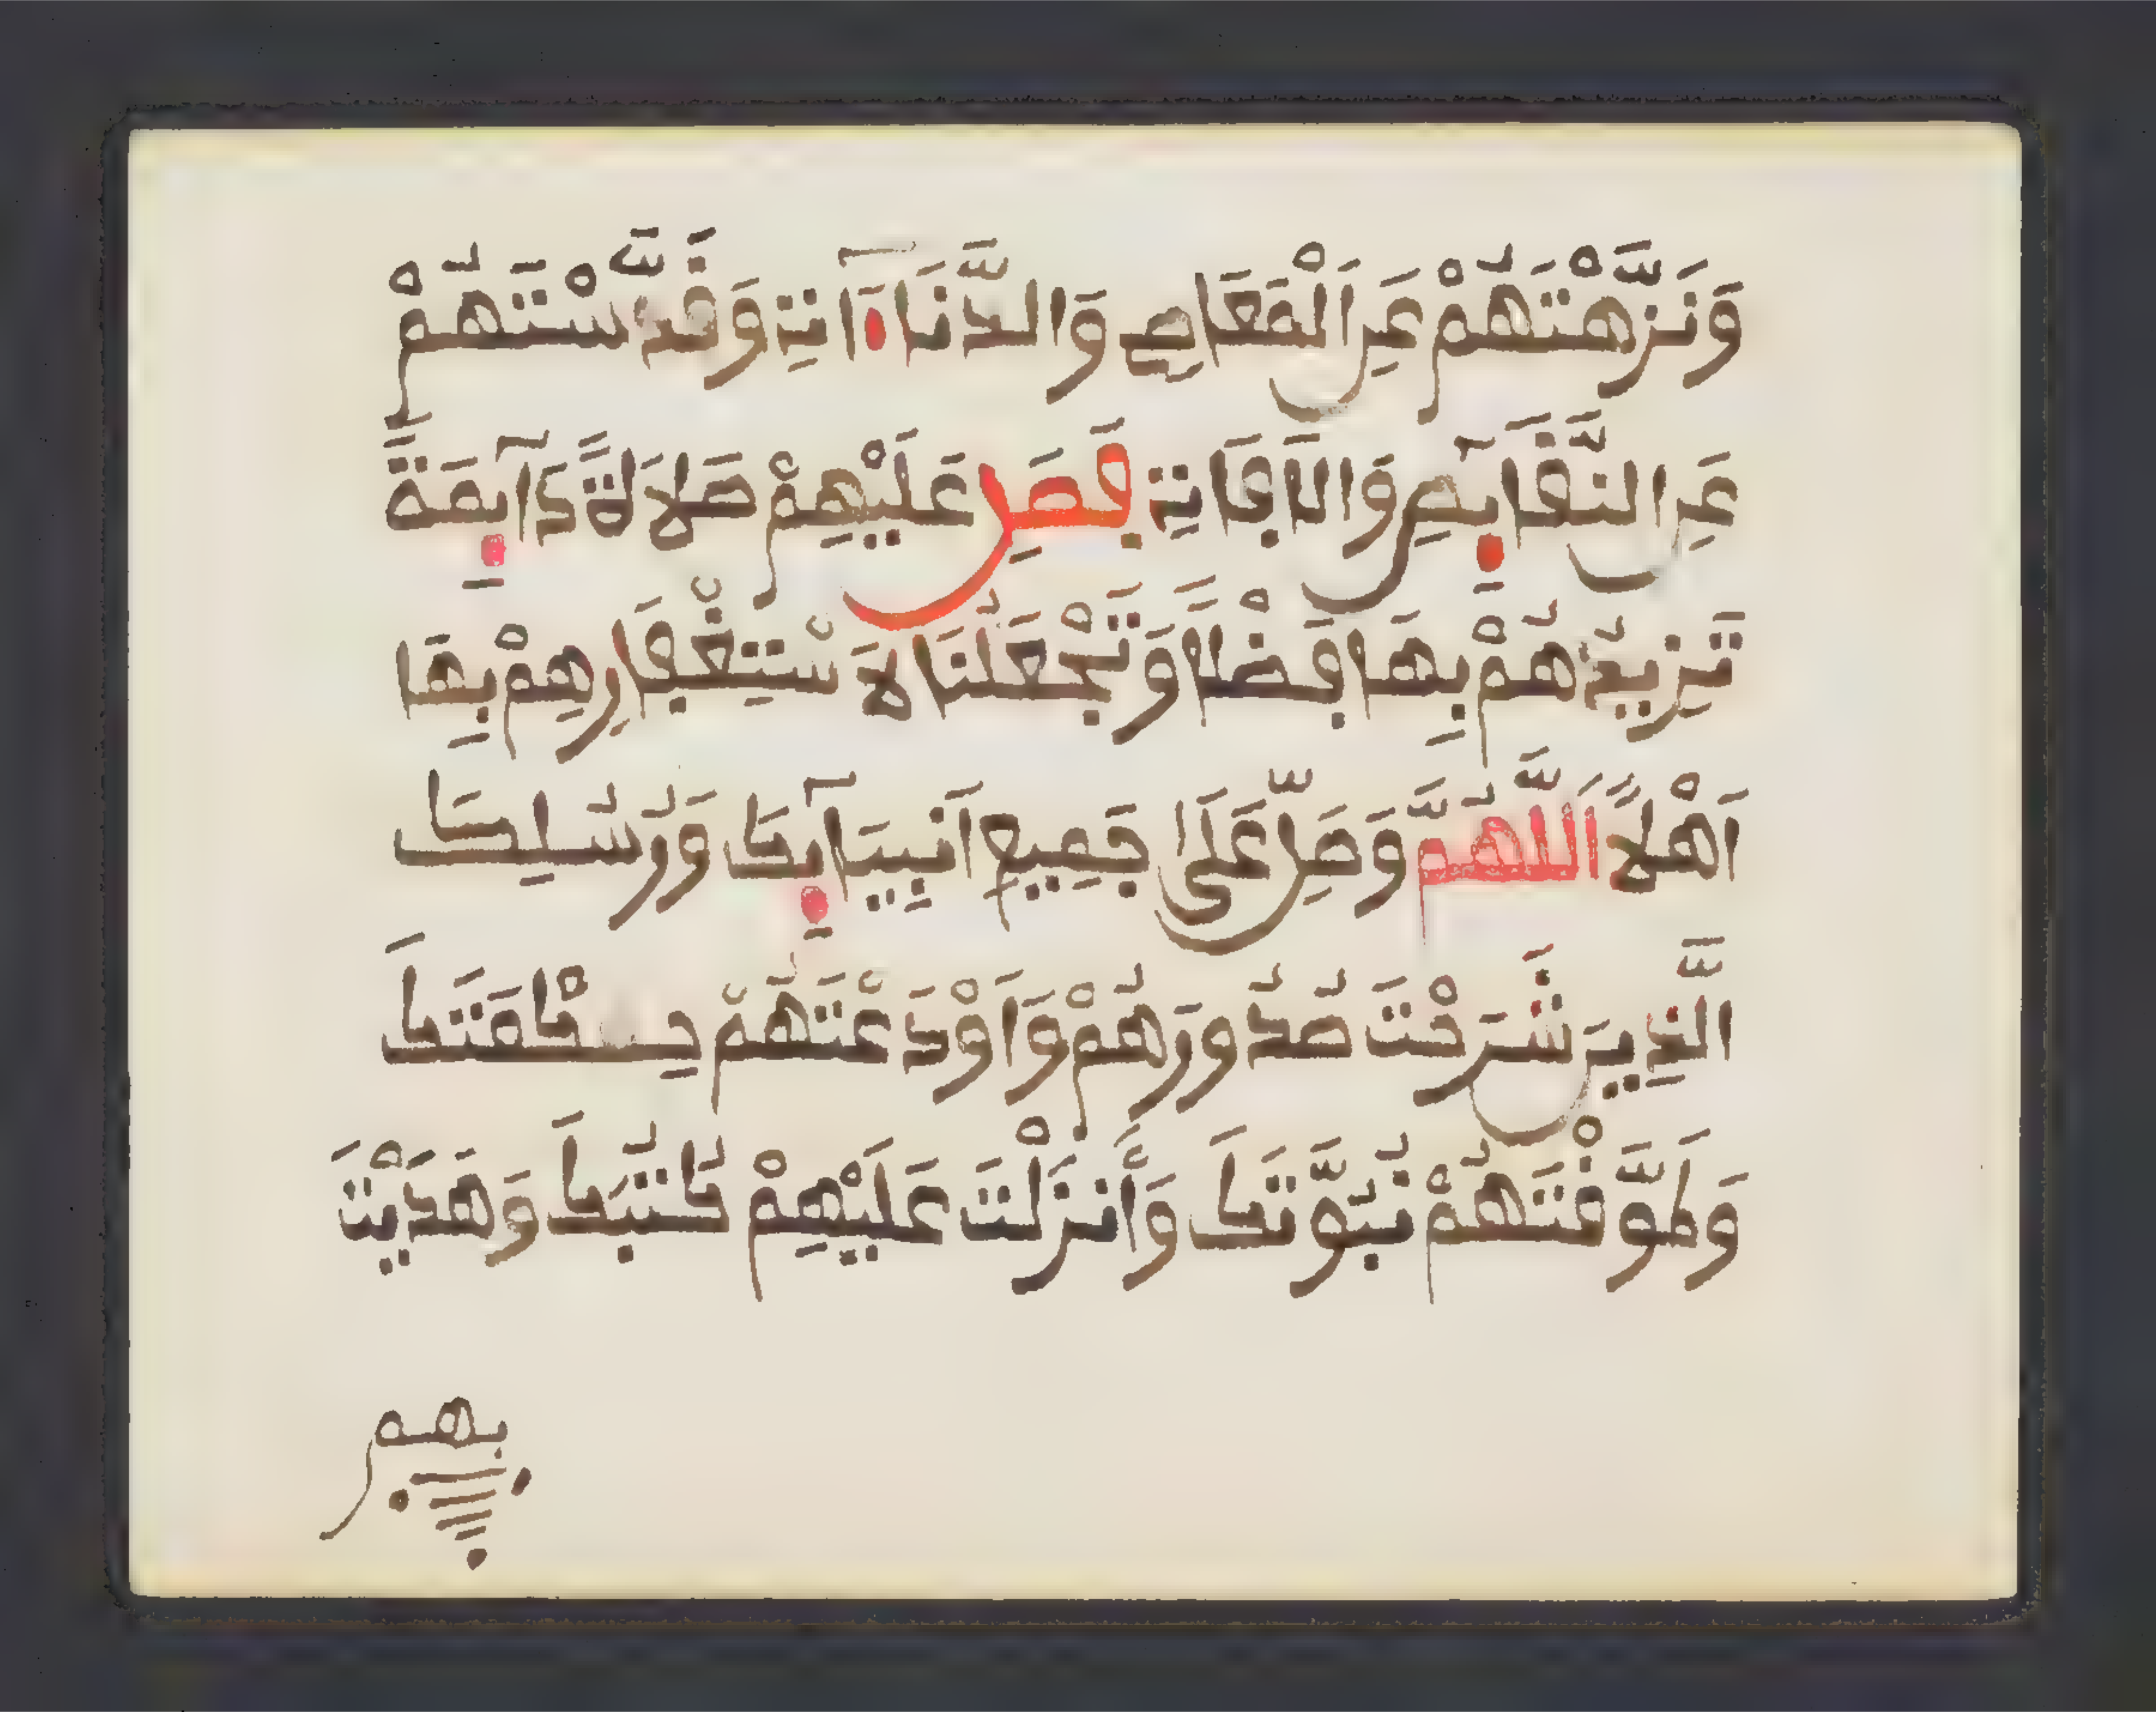 وَنَزَّهْتَهُمْ عَنِ الْمَعَاصِے وَالدَّنَآءَاتِ وَقَدَّسْتَهُمْ
عَنِ النَّقَآئِصِ وَالَافَاتِ فَصَلِّ عَلَيْهِمْ صَلَاةً دَآئِمَةً
تَزِيدُهُمْ بِهَا فَضْلًا وَتَجْعَلُنَا لَاسْتِغْفَارِهِمْ بِهَا
اَهْلًا اَللَّهُمَّ وَصَلِّ عَلَىٰ جَمِيعِ اَنْبِيَآئِكَ وَرُسُلِكَ
الَّذِينَ شَرَحْتَ صُدُورَهُمْ وَاَوْدَعْتَهُمْ حِكْمَتَكَ
وَطَوَّقْتَهُمْ نُبُوَّتَكَ وَأَنْزَلْتَ عَلَيْهِمْ كُتُبَكَ وَهَدَيْتَ
بهم